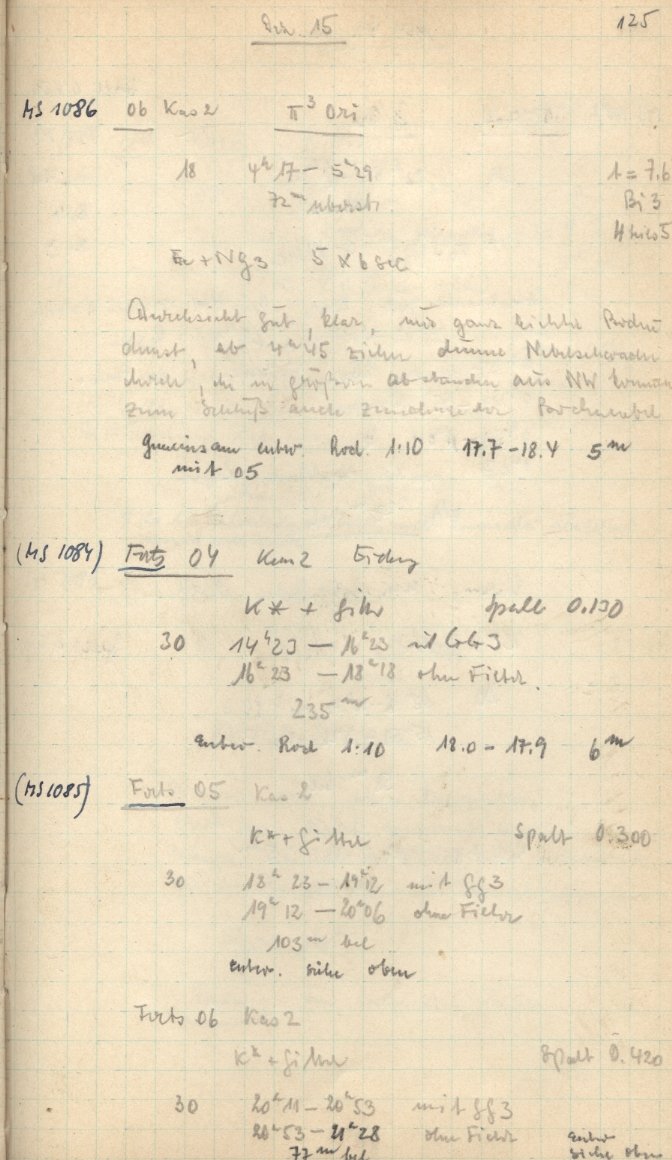 Dez. 15 125
MS 1086 06 Kas 2 π³ Ori
18 4ʰ17 – 5ʰ29 t = 7.6
72ᵐ überstr. Bi 3
5
+ Ng3 5 x 6 sec
Durchsicht gut, klar, nur ganz leichte Boden
dunst, ab 4ʰ45 ziehen dünne Nebelschwaden
durch, die in größeren Abständen aus NW kommen
zum Schluß auch
Gemeinsam entw. Rod. 1:10 17.7 – 18.4 5ᵐ
mit 05
(MS 1084) Forts 04 Kas 2
K* + Gitter Spalt 0.130
30 14ʰ23 – 16ʰ23 mit GG 3
16ʰ23 – 18ʰ18 ohne Filter.
235ᵐ
entw. Rod 1:10 18.0 – 17.9 6ᵐ
(MS 1085) Forts 05 Kas 2
K* + Gitter Spalt 0.300
30 18ʰ23 – 19ʰ12 mit GG3
19ʰ12 – 20ʰ06 ohne Filter
103ᵐ bel
entw. siehe oben
Forts 06 Kas 2
K* + Gitter Spalt 0.420
30 20ʰ11 – 20ʰ53 mit GG3
20ʰ53 – 21ʰ28 ohne Filter entw
77ᵐ bel siehe oben